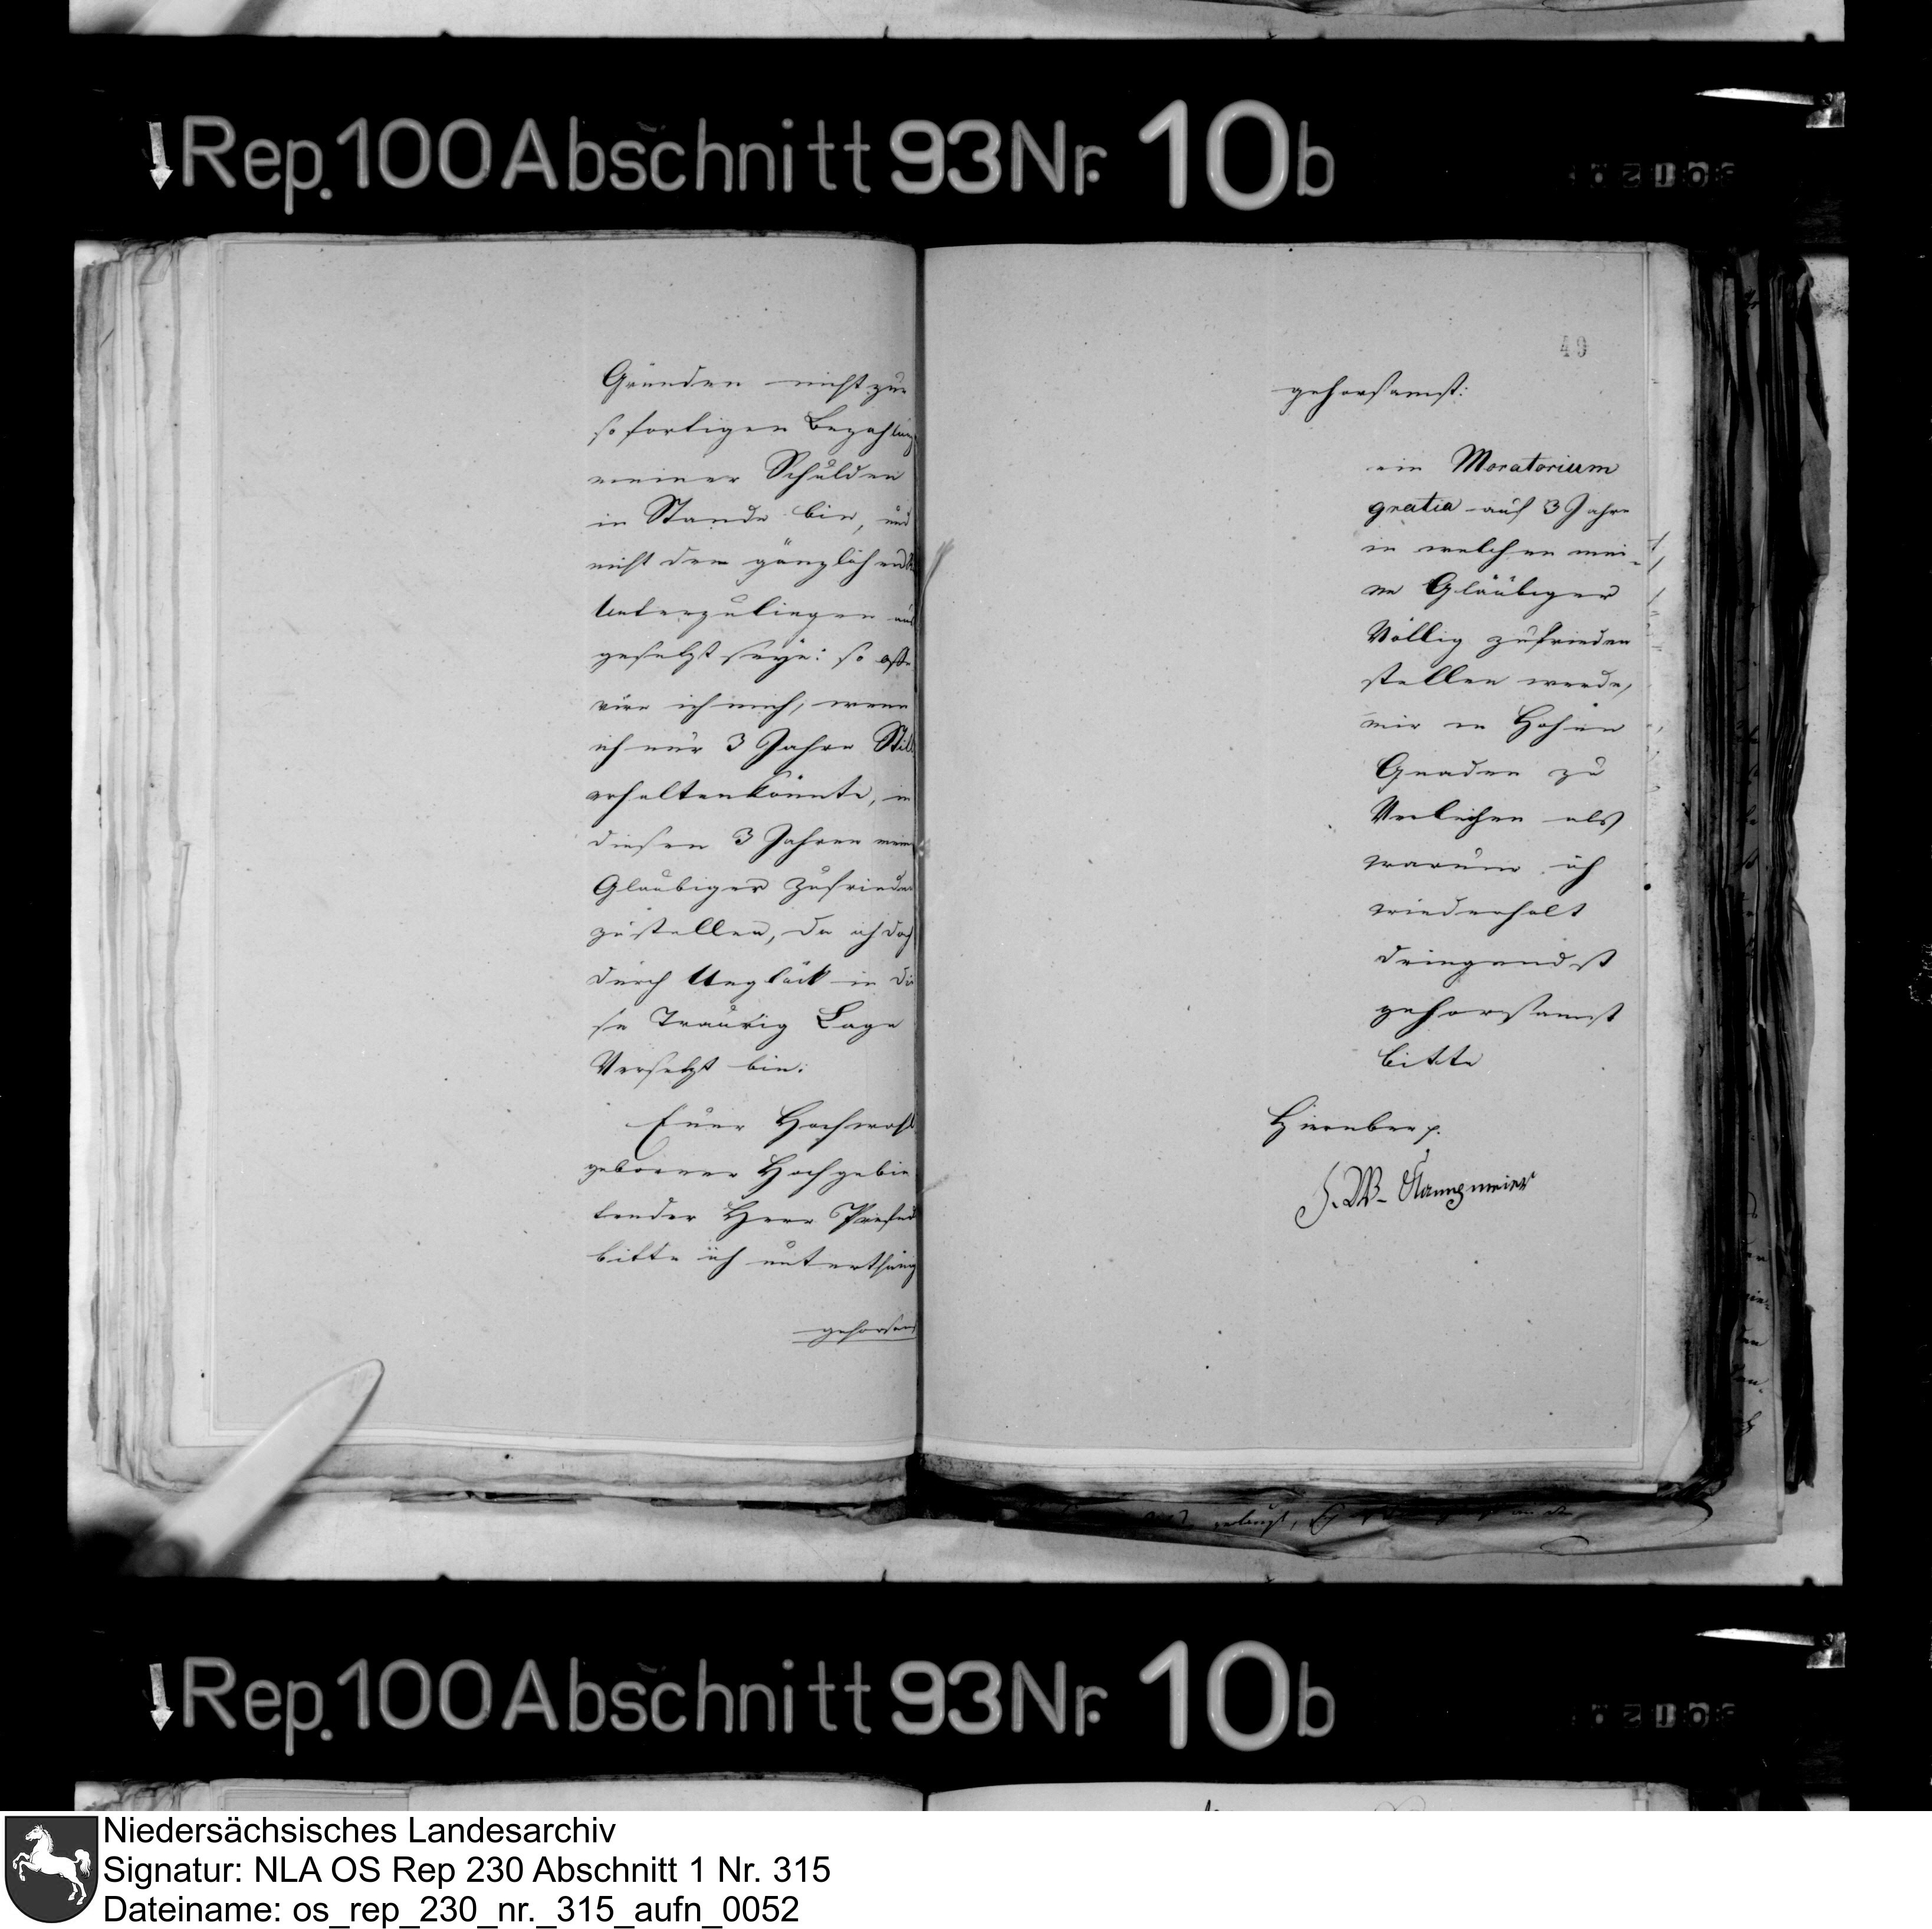 Rep. 100 Abschnitt 93 Nr. 10b
Gründen nicht zur
sofortigen Bezahlung
meiner Schulden
in Stande bin, und
nicht dem gänzlichen
Unterzuliegen aus
gesetzt seye: so offe
rire ich mich, wenn
ich nur 3 Jahre Still
erhalten könnte, in
diesen 3 Jahren meine
Glaubiger Zufrieden
zustellen, da ich doch
durch Unglück in die
se Traurig Lage
Versetzt bin.
Euer Hochwohl
geborner Hochgebie
tender Herr Prefect
bitte ich unterthänig
gehorsams
49
gehorsamst:
ein Moratorium
gratia auf 3 Jahre
in welchen mei-
ne Gläübiger
Völlig zufrieden
stellen werde,
mir in Hohen
Gnaden zu
Verleihen als
warum ich
wiederholt
dringendst
gehorsamst
bitte
Hierüber p.
J. W.
Rep. 100 Abschnitt 93 Nr. 10b
Niedersächsisches Landesarchiv
Signatur: NLA OS Rep 230 Abschnitt 1 Nr. 315
Dateiname: os_rep_230_nr._315_aufn_0052